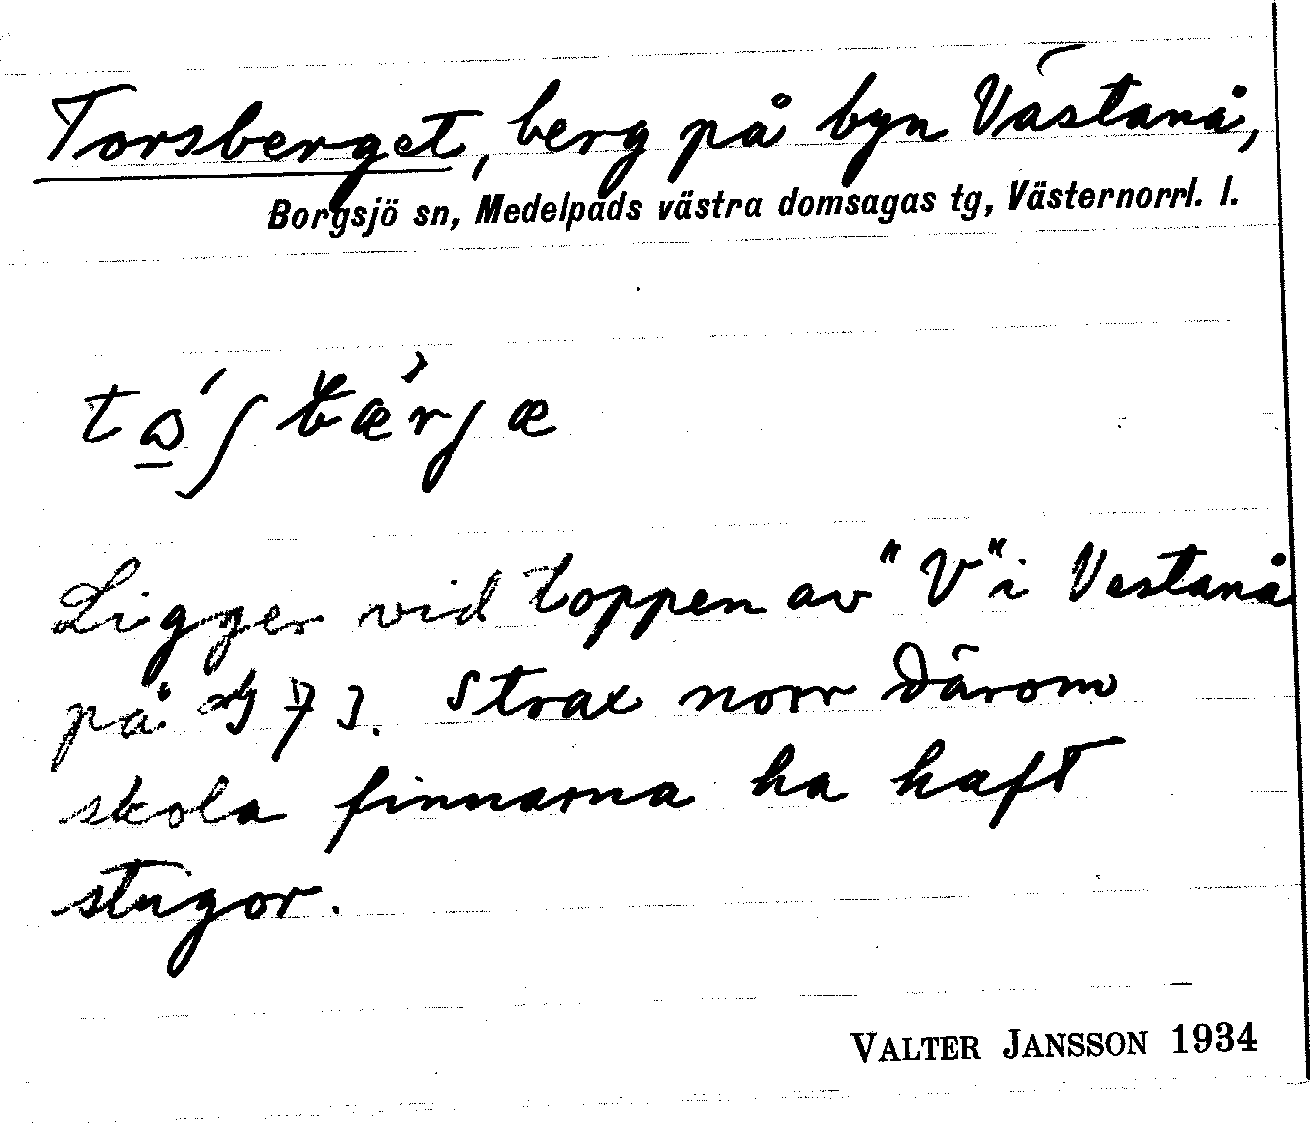 Torsberget, berg på byn Västanå,
Borgsjö sn, Medelpads västra domsagas tg, Västernorrl. l.
Ligger vid toppen av "V" i Vestanå
på 73. Strax norr därom
skola finnarna ha haft
stugor.
VALTER JANSSON 1934